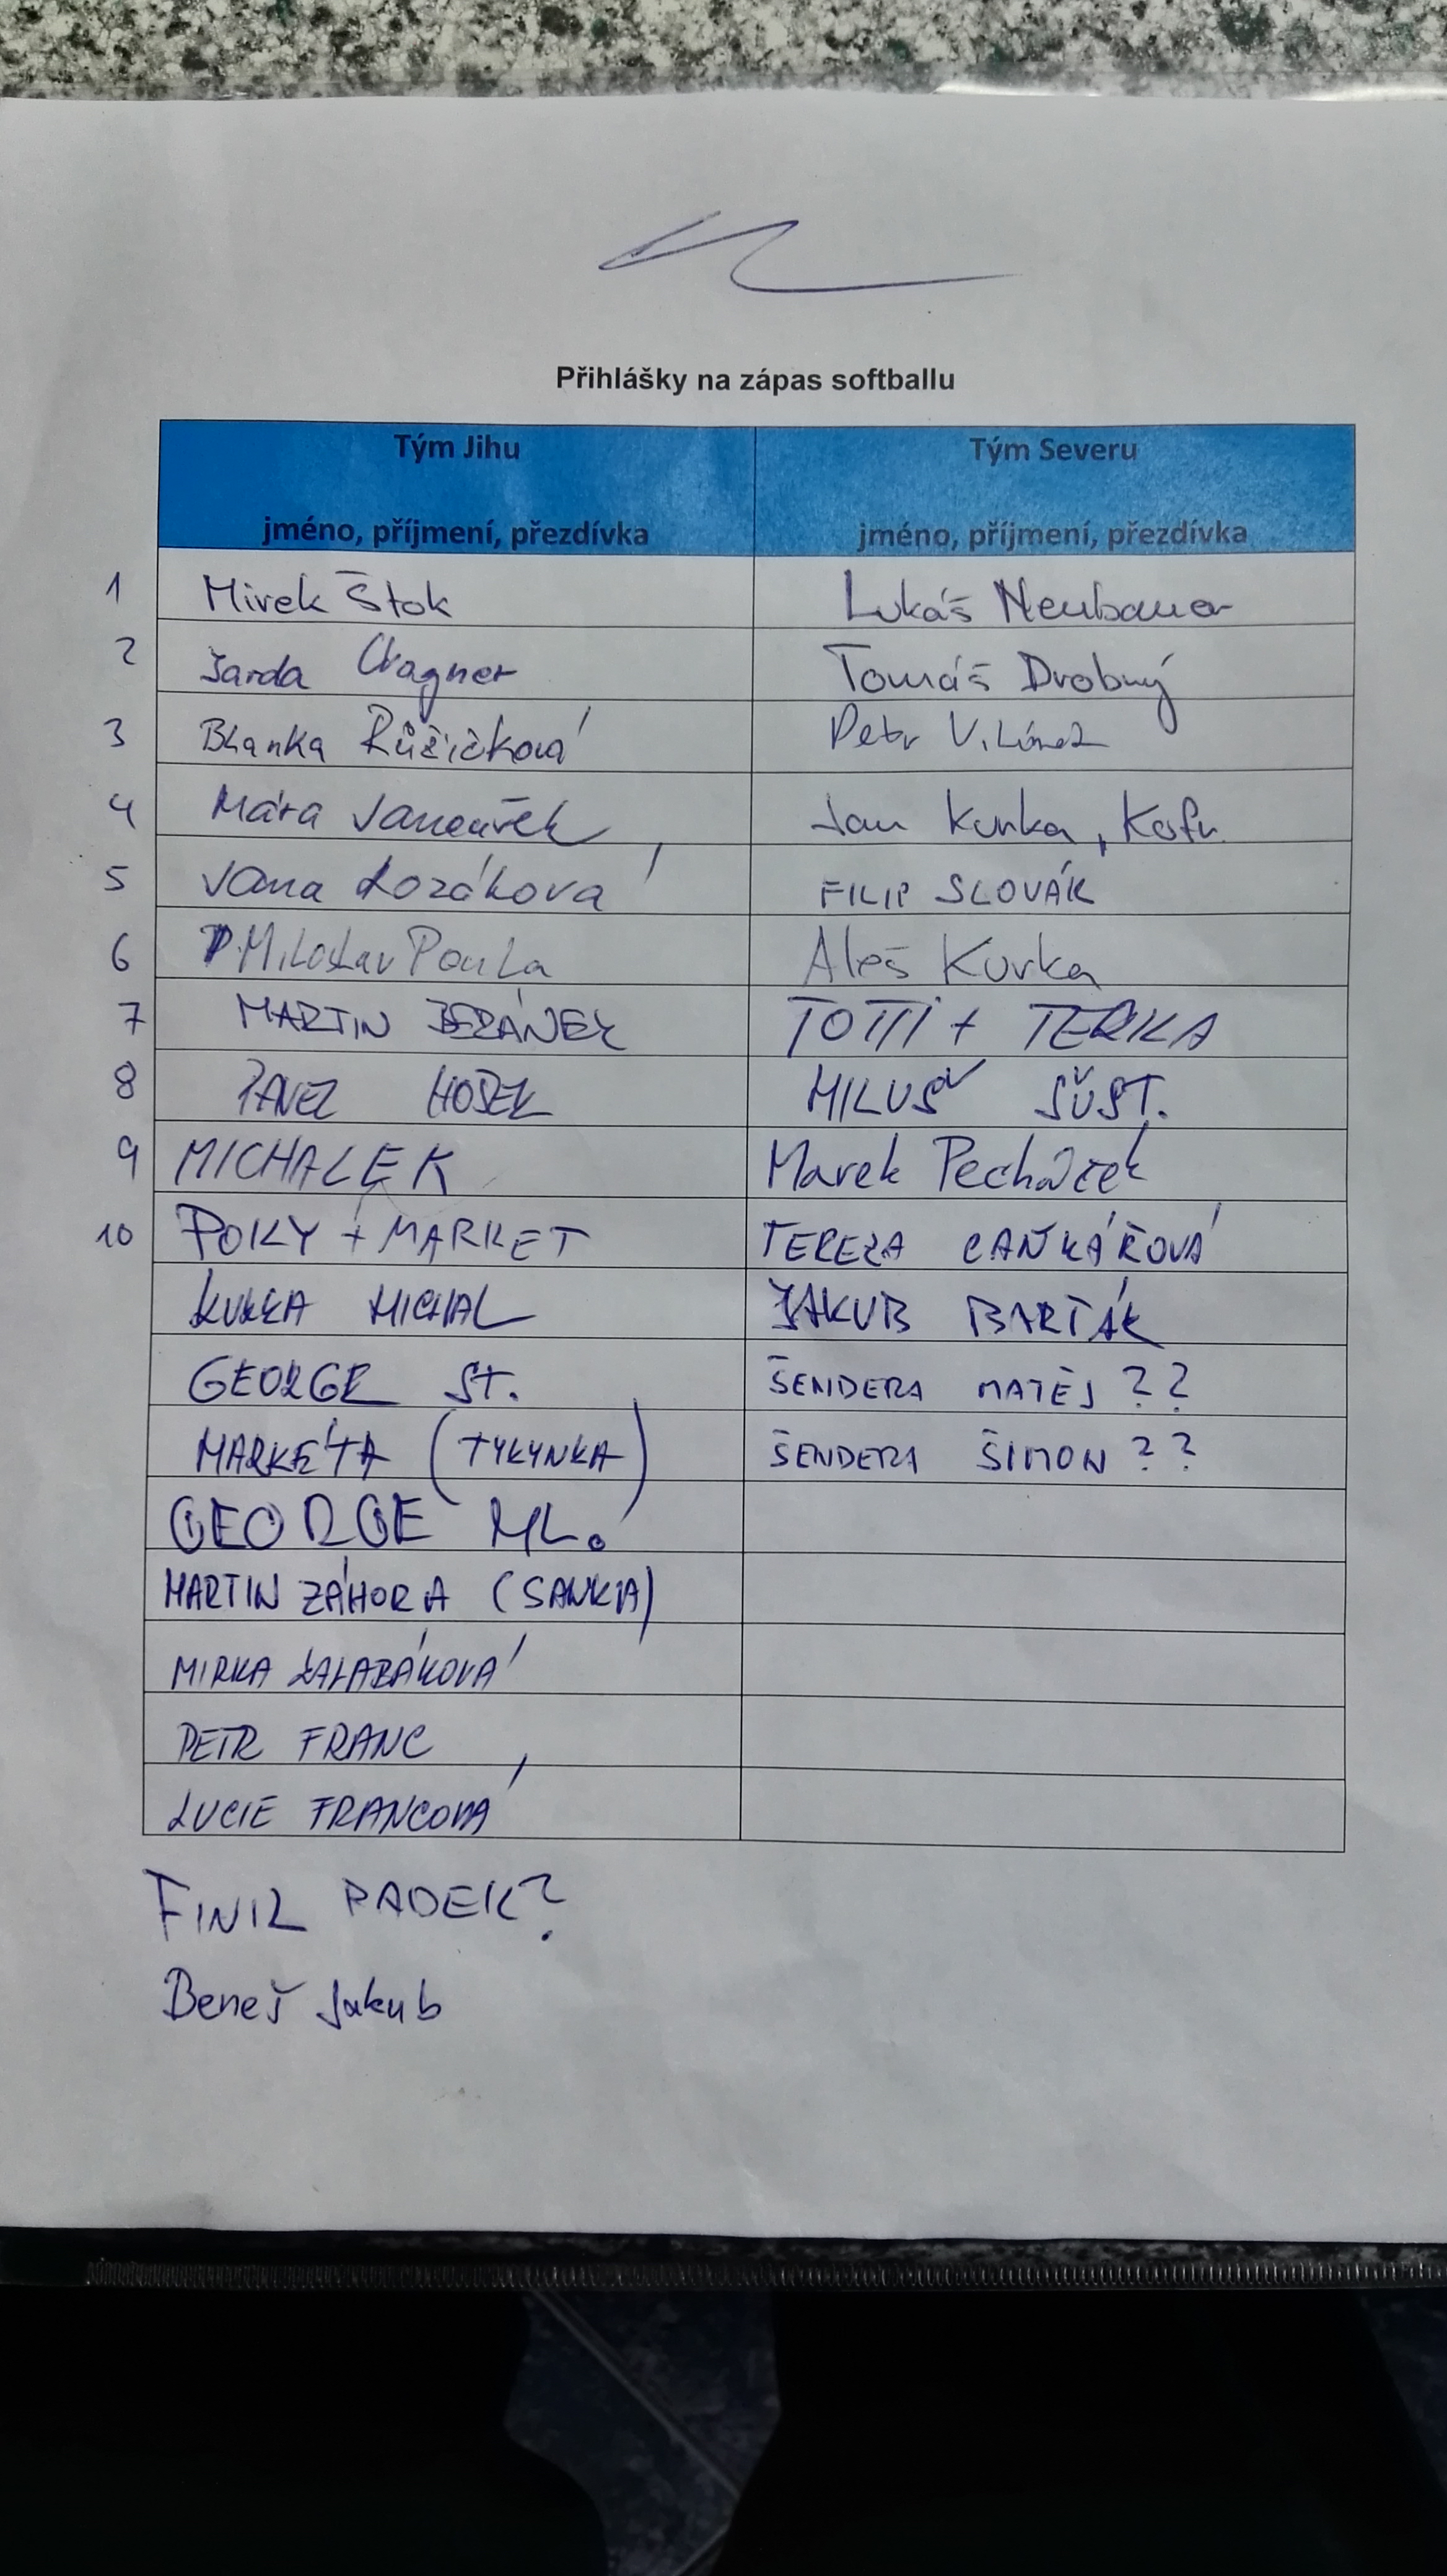 Přihlášky na zápas softballu
Tým Jihu Tým Severu
jméno, příjmení, přezdívka jméno, příjmení, přezdívka
1 Mirek Štok Lukáš Neubauer
2 Jarda Wagner Tomáš Drobný
3 Blanka Růžičková Petr Vilímek
4 Mára Janeurek Jan Kurka, Kofr
5 Jana Kozáková FILIP SLOVÁK
6 Miloslav Poula Aleš Kurka
7 MARTIN BERÁNEK TOTTI + TERKA
8 PAVEL HOŠEK MILUŠ ŠŮST.
9 MICHALEK Marek Pecháček
10 POKY + MARKET TEREZA CAŇKÁŘOVÁ
KURKA MICHAL JAKUB BARTÁK
GEORGE ST. ŠENDERA MATĚJ ??
MARKÉTA (TYKYNKA) ŠENDERA ŠIMON ??
GEORGE ML.
MARTIN ZÁHORA (SANKA)
MIRKA ZALABÁKOVÁ
PETR FRANC
LUCIE FRANCOVÁ
FINIL RADEK?
Beneš Jakub